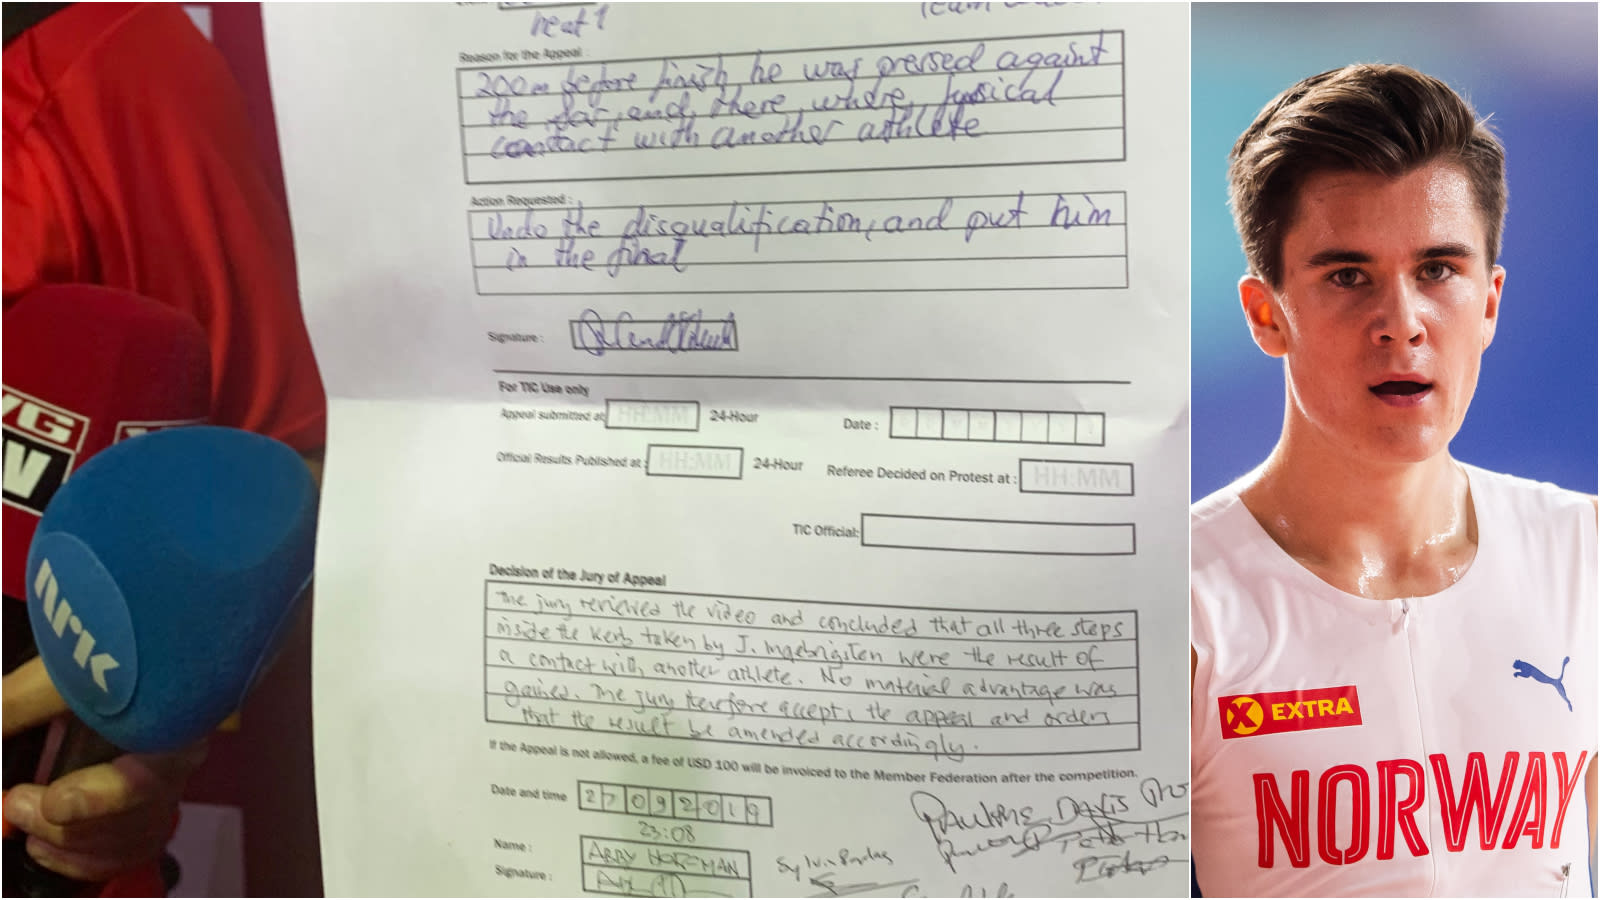 heat 1
Team
Reason for the Appeal :
200m before finish he was pressed against
the bar, and there, where, fysical
contact with another athlete
Action Requested :
Undo the disqualification, and put him
in the final
Signature :
For TIC Use only
Appeal submitted at HH:MM 24-Hour Date :
Official Results Published at : HH:MM 24-Hour Referee Decided on Protest at : HH:MM
TIC Official:
Decision of the Jury of Appeal
The jury reviewed the video and concluded that all three steps
inside the kerb taken by J. Ingebrigsten were the result of
a contact with another athlete. No material advantage was
gained. The jury therefore accepts the appeal and orders
that the result be amended accordingly.
If the Appeal is not allowed, a fee of USD 100 will be invoiced to the Member Federation after the competition.
Date and time 27092019
23:08
Name :
Signature :
DAVIS
VG
nrk
X EXTRA
NORWAY